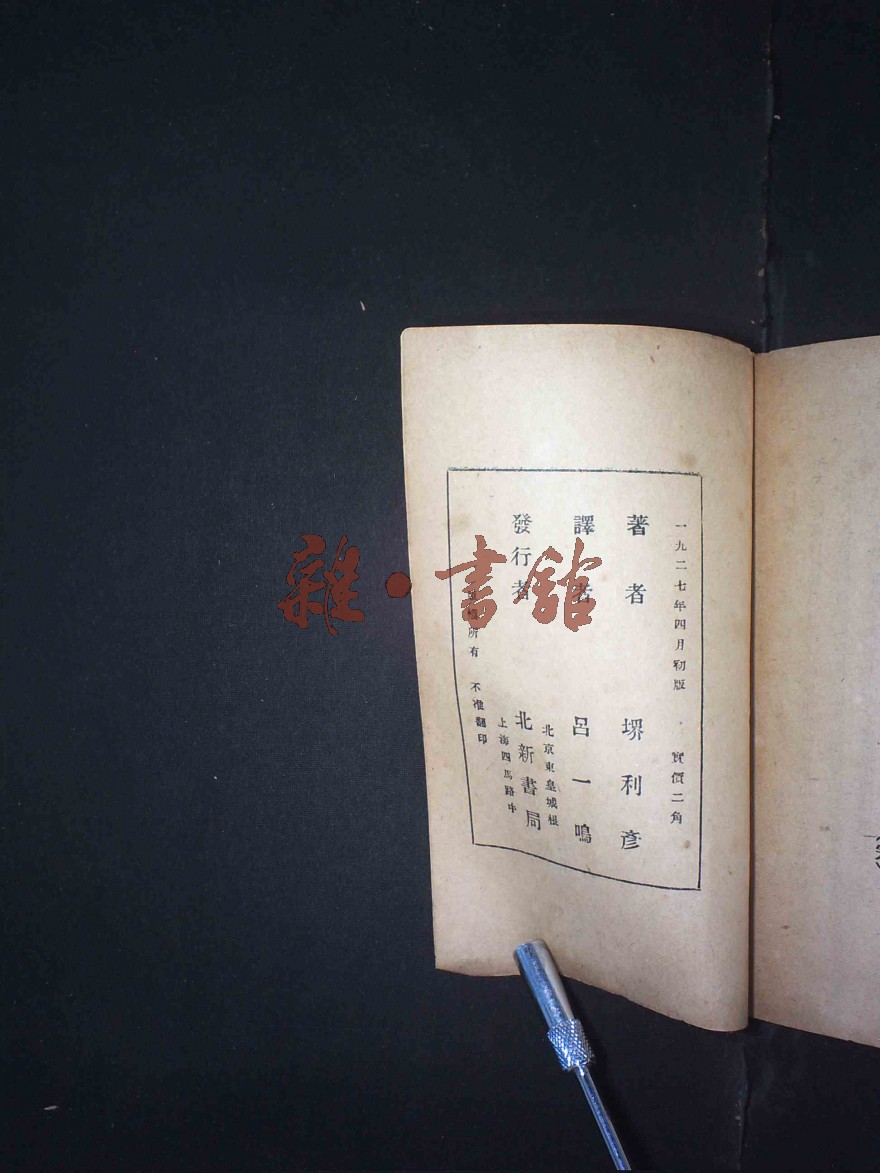 一九二七年四月初版 實價二角
著者 堺利彥
譯者 呂一鳴
發行者 北新書局
北京東皇城根
上海四馬路中
所有 不准翻印
雜·書館